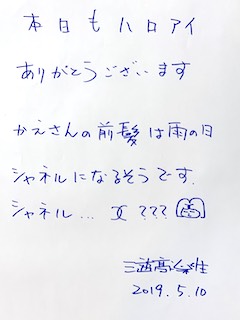 本日もハロアイ
ありがとうございます
かえさんの前髪は雨の日
シャネルになるそうです.
シャネル... ???
2019.5.10